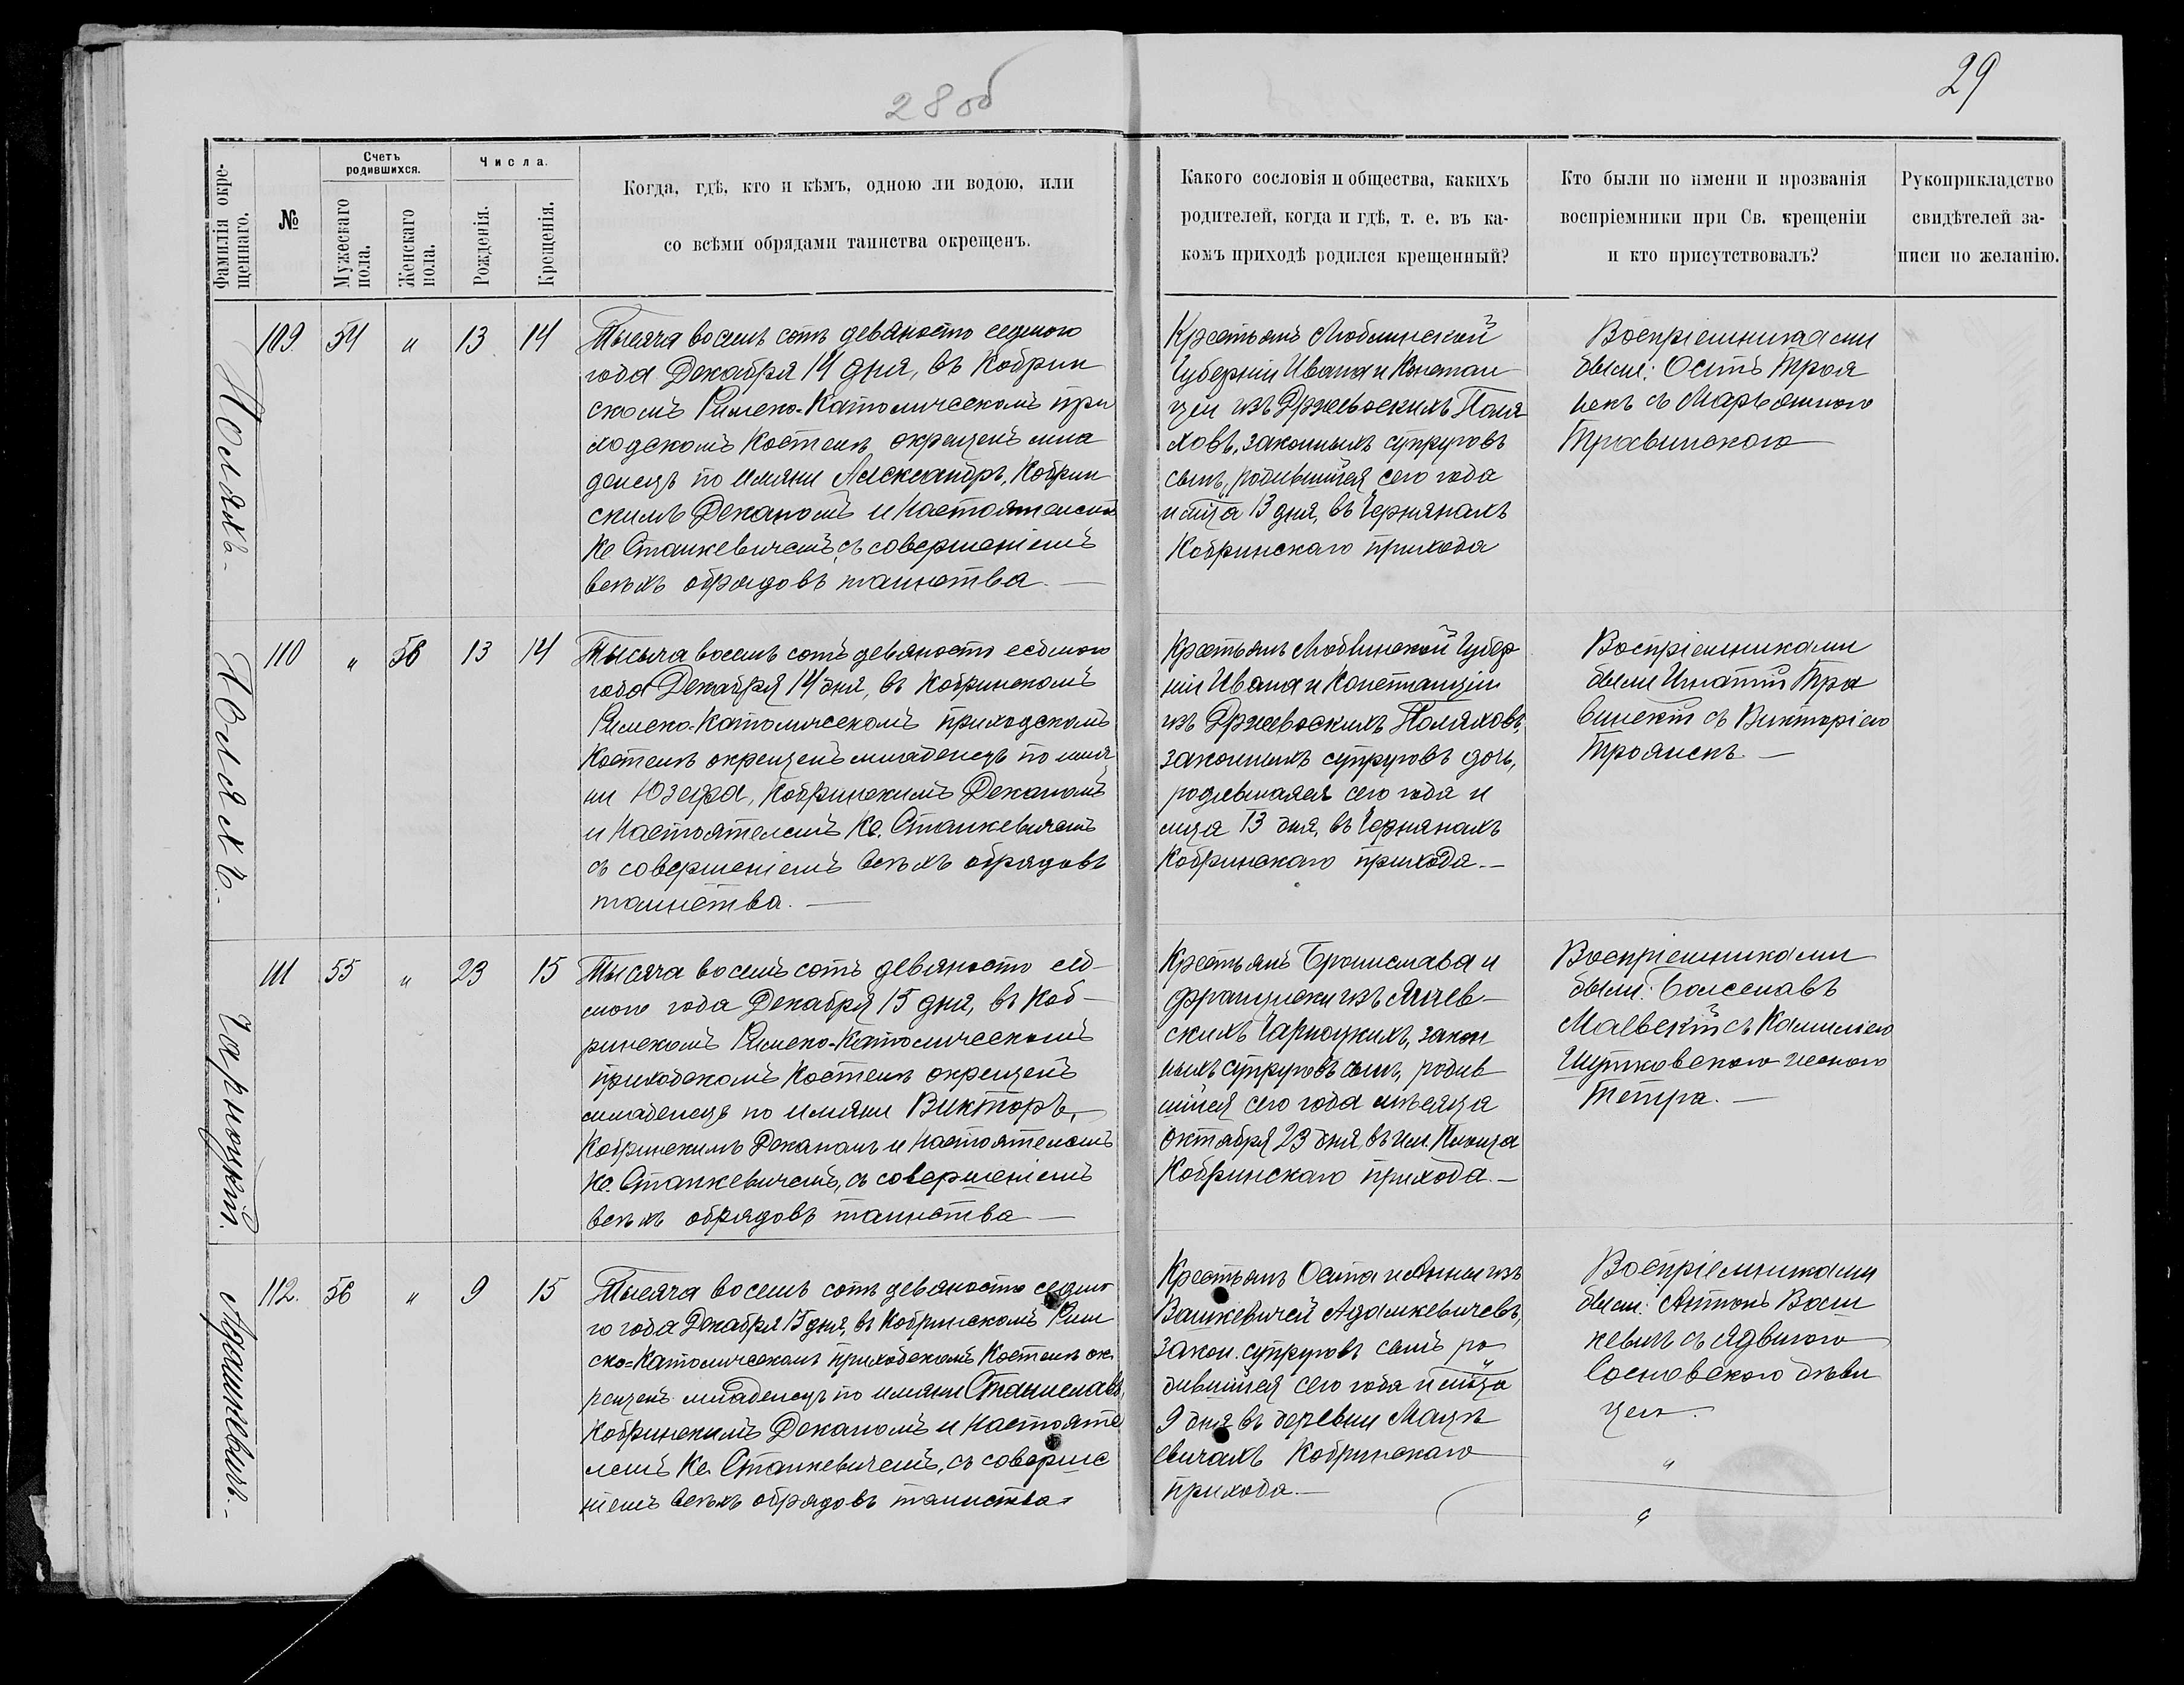 28 об
29
Фамилія окре-
щеннаго.
№
Счетъ
родившихся.
Мужескаго
пола.
Женскаго
пола.
Числа.
Рожденія.
Крещенія.
Когда, гдѣ, кто и кѣмъ, одною ли водою, или
со всѣми обрядами таинства окрещенъ.
Какого сословія и общества, какихъ
родителей, когда и гдѣ, т. е. въ ка-
комъ приходѣ родился крещенный?
Кто были по имени и прозванія
воспріемники при Св. крещеніи
и кто присутствовалъ?
Рукоприкладство
свидѣтелей за-
писи по желанію.
Полякъ-
109 54 " 13 14
Тысяча восемь сотъ девяносто седмого
года Декабря 14 дня, въ Кобрин
скомъ Римско-Католическомъ при
ходскомъ Костелѣ окрещенъ мла
денецъ по имяни Александръ, Кобрин
скимъ Деканомъ и Настоятелемъ
Кс Станкевичемъ, съ совершеніемъ
всѣхъ обрядовъ таинства. —
Крестьянъ Люблинской
Губерніи Ивана и Констан
ціи изъ Држевоскихъ Поля
ховъ, законныхъ супруговъ
сынъ, родившійся сего года
и мца 13 дня, въ Чернянахъ
Кобринскаго прихода
Воспріемниками
были: Осипъ Троя
некъ съ Марьянною
Травинскою
Полякъ.
110 " 56 13 14
Тысяча восемь сотъ девяносто седмого
года Декабря 14 дня, въ Кобринскомъ
Римско-Католическомъ приходскомъ
Костелѣ окрещенъ младенецъ по имя
ни Юзефа, Кобринскимъ Деканомъ
и Настоятелемъ Кс. Станкевичемъ
съ совершеніемъ всѣхъ обрядовъ
таинства. —
Крестьянъ Люблинской Губер
ніи Ивана и Констанціи
изъ Држевоскихъ Поляховъ,
законныхъ супруговъ дочь,
родившаяся сего года и
мца 13 дня, въ Чернянахъ
Кобринскаго прихода. —
Воспріемниками
были Игнатій Тра
винскій съ Викторіею
Троянекъ —
Чарноцкій.
111 55 " 23 15
Тысяча восемь сотъ девяносто сед-
мого года Декабря 15 дня, въ Коб-
ринскомъ Римско-Католическомъ
приходскомъ Костелѣ окрещенъ
младенецъ по имяни Викторъ,
Кобринскимъ Деканомъ и Настоятелемъ
Кс. Станкевичемъ, съ совершеніемъ
всѣхъ обрядовъ таинства —
Крестьянъ Бронислава и
Францишки изъ
скихъ Чарноцкихъ, закон
ныхъ супруговъ сынъ, родив
шійся сего года мѣсяца
Октября 23 дня, въ им.
Кобринскаго прихода. —
Воспріемниками
были: Болеславъ
Маевскій съ Камиліею
Шутковскою женою
Петра. —
Адамкевичъ.-
112. 56 " 9 15
Тысяча восемь сотъ девяносто седмо
го года Декабря 15 дня, въ Кобринскомъ Рим
ско-Католическомъ приходскомъ Костелѣ ок
рещенъ младенецъ по имяни Станиславъ,
Кобринскимъ Деканомъ и Настояте
лемъ Кс. Станкевичемъ, съ соверше
ніемъ всѣхъ обрядовъ таинства
Крестьянъ Осипа и Анны изъ
Вашкевичей Адамкевичевъ,
закон. супруговъ сынъ ро
дившійся сего года и мца
9 дня въ деревни Мацк
евичахъ Кобринскаго
прихода. —
Воспріемниками
были: Антонъ Ваш
кевичъ съ Ядвигою
Сосновскою дѣви
цею.
"